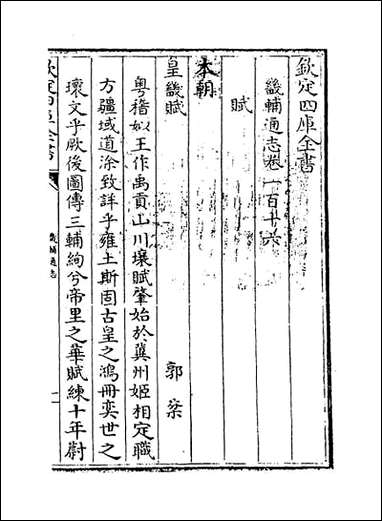 欽定四庫全書
畿輔通志卷一百十六
賦
本朝
皇畿賦 郭棻
粤稽姒王作禹貢山川壤賦肇始於冀州姬相定職
方疆域道涂致詳乎雍土斯固古皇之鴻冊奕世之
瓌文乎厥後圖傳三輔絢兮帝里之華賦練十年蔚
欽定四庫全書
畿輔通志
一